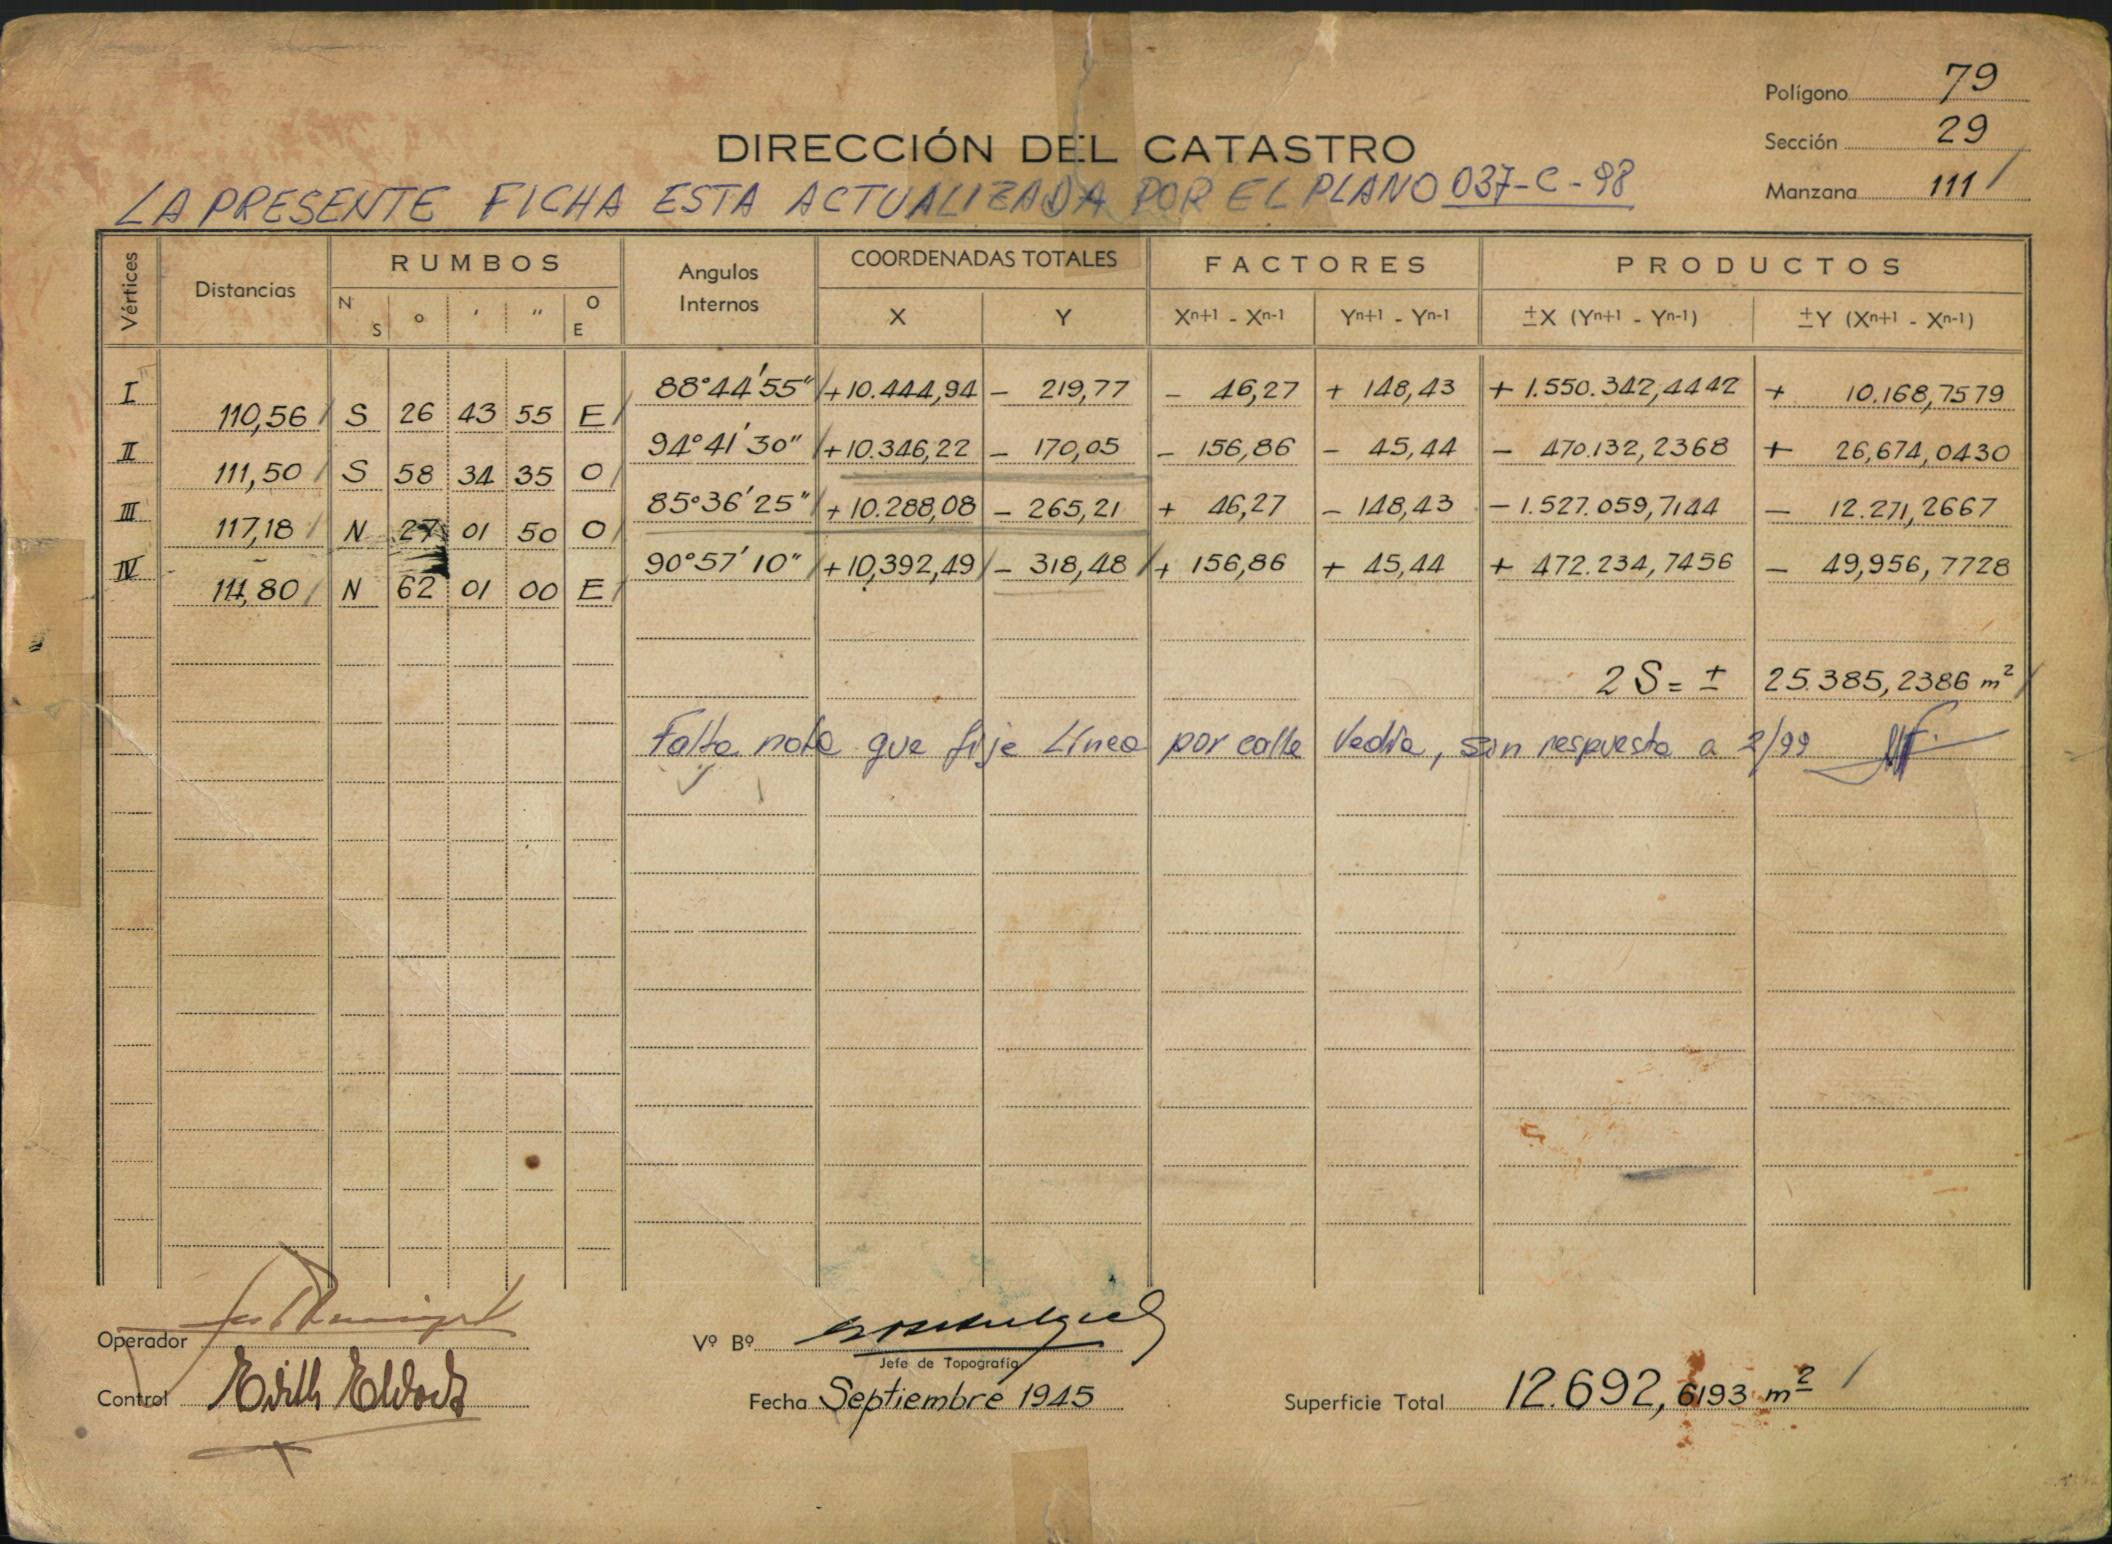 Polígono 79
DIRECCIÓN DEL CATASTRO
Sección 29
LA PRESENTE FICHA ESTA ACTUALIZADA POR EL PLANO 037-C-98
Manzana 111
Vértices Distancias RUMBOS Angulos Internos COORDENADAS TOTALES FACTORES PRODUCTOS
N S ° ' " O E X Y Xn+1 - Xn-1 Yn+1 - Yn-1 ±X (Yn+1 - Yn-1) ±Y (Xn+1 - Xn-1)
I 88°44'55" +10.444,94 - 219,77 - 46,27 + 148,43 + 1.550.342,4442 + 10.168,7579
110,56 S 26 43 55 E
II 94°41'30" +10.346,22 - 170,05 - 156,86 - 45,44 - 470.132,2368 + 26,674,0430
111,50 S 58 34 35 O
III 85°36'25" +10.288,08 - 265,21 + 46,27 - 148,43 - 1.527.059,7144 - 12.271,2667
117,18 N 27 01 50 O
IV 90°57'10" +10,392,49 - 318,48 + 156,86 + 45,44 + 472.234,7456 - 49,956,7728
111,80 N 62 01 00 E
2S = ± 25.385,2386 m²
Falta nota que fije Línea por calle Vedia, sin respuesta a 2/99
Operador
Vº Bº
Jefe de Topografía
Control Edith
Fecha Septiembre 1945
Superficie Total 12.692,6193 m²